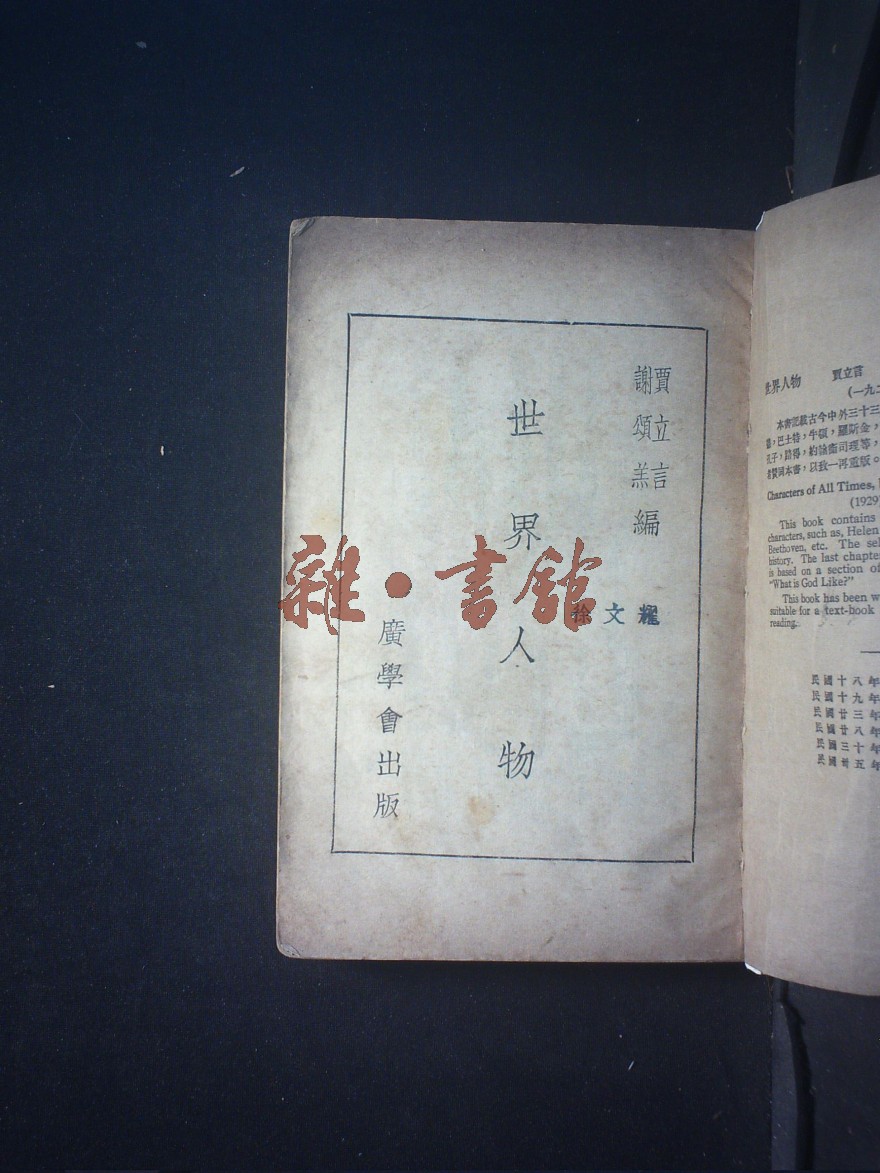 賈立言
謝頌羔編
世界人物
廣學會出版
徐文耀
雜·書館
世界人物 賈立言
(一九二
本書記載古今中外三十三
備,巴士特,牛頓,羅斯金,
孔子,路得,約翰衛司理等,
者贊同本書,以致一再重版。
Characters of All Times,
(1929)
This book contains
characters, such as, Helen
Beethoven, etc. The sel
history. The last chapter
is based on a section of
"What is God Like?"
This book has been w
suitable for a text-book
reading.
民國十八年
民國十九年
民國廿三年
民國廿八年
民國三十年
民國卅五年